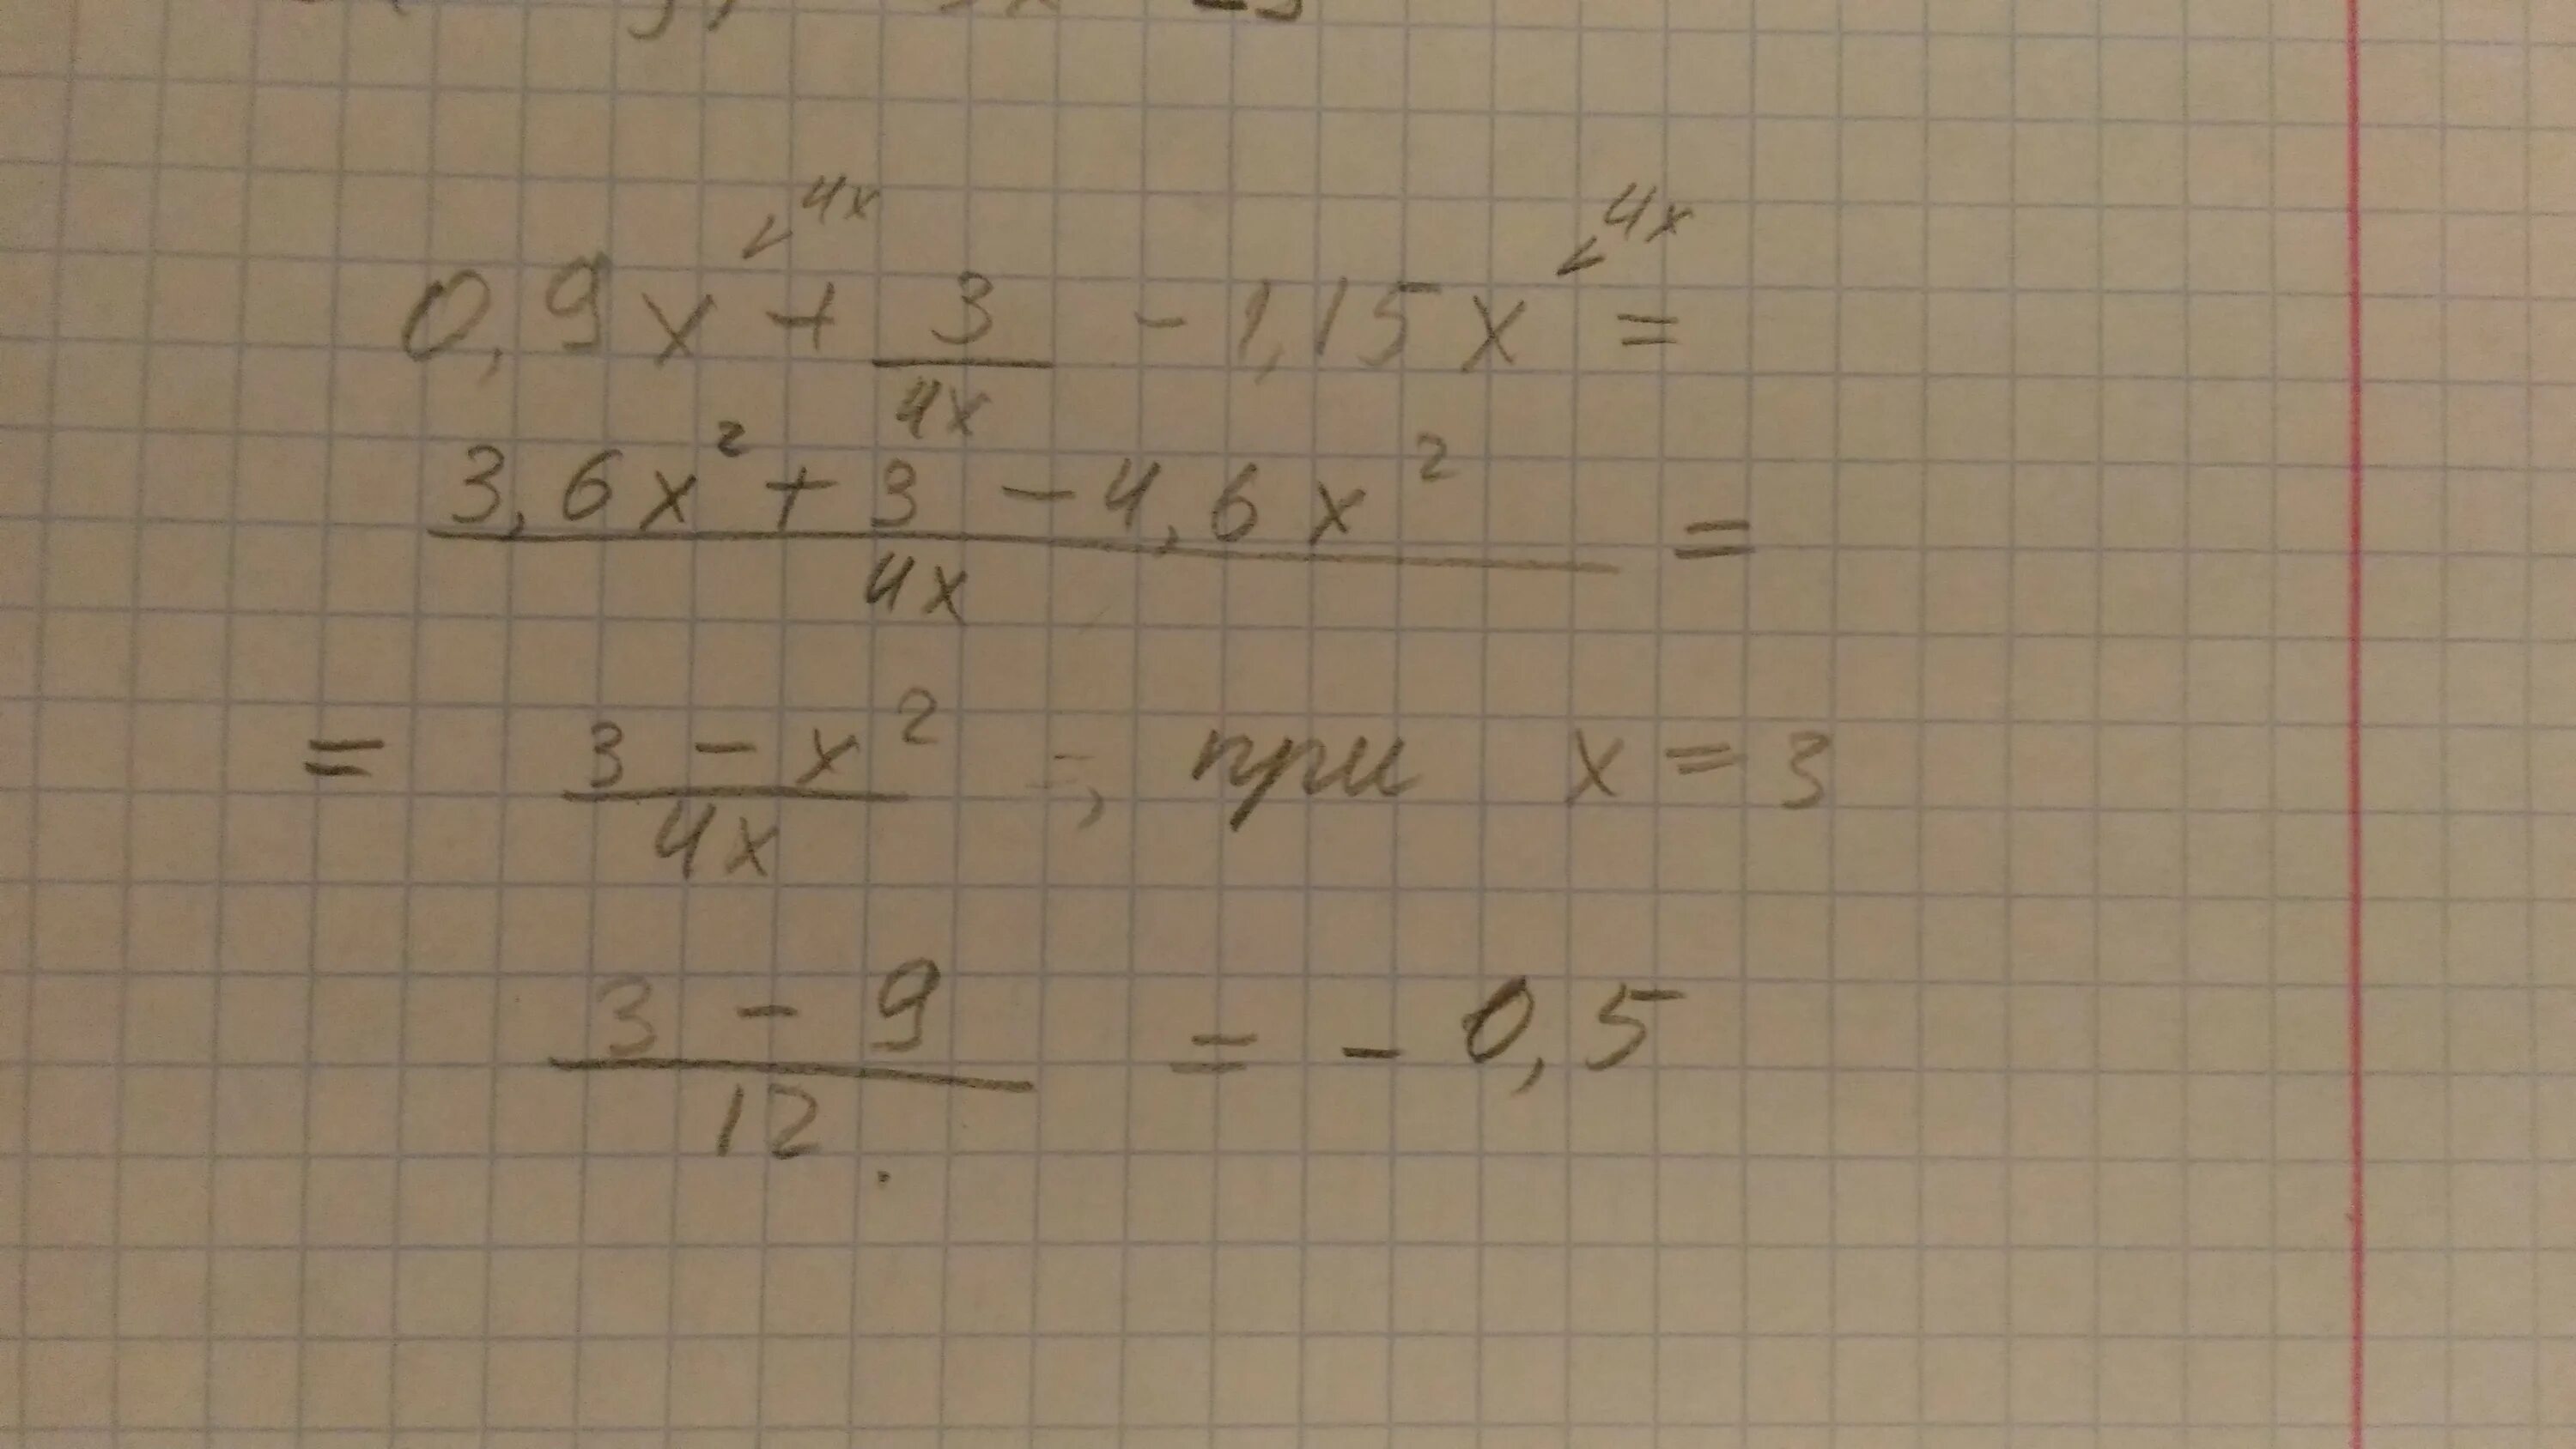 4x 4x
0,9x + 3/4x - 1,15x =
3,6x² + 3 - 4,6x² / 4x =
= 3 - x² / 4x , при x = 3
3 - 9 / 12 = - 0,5